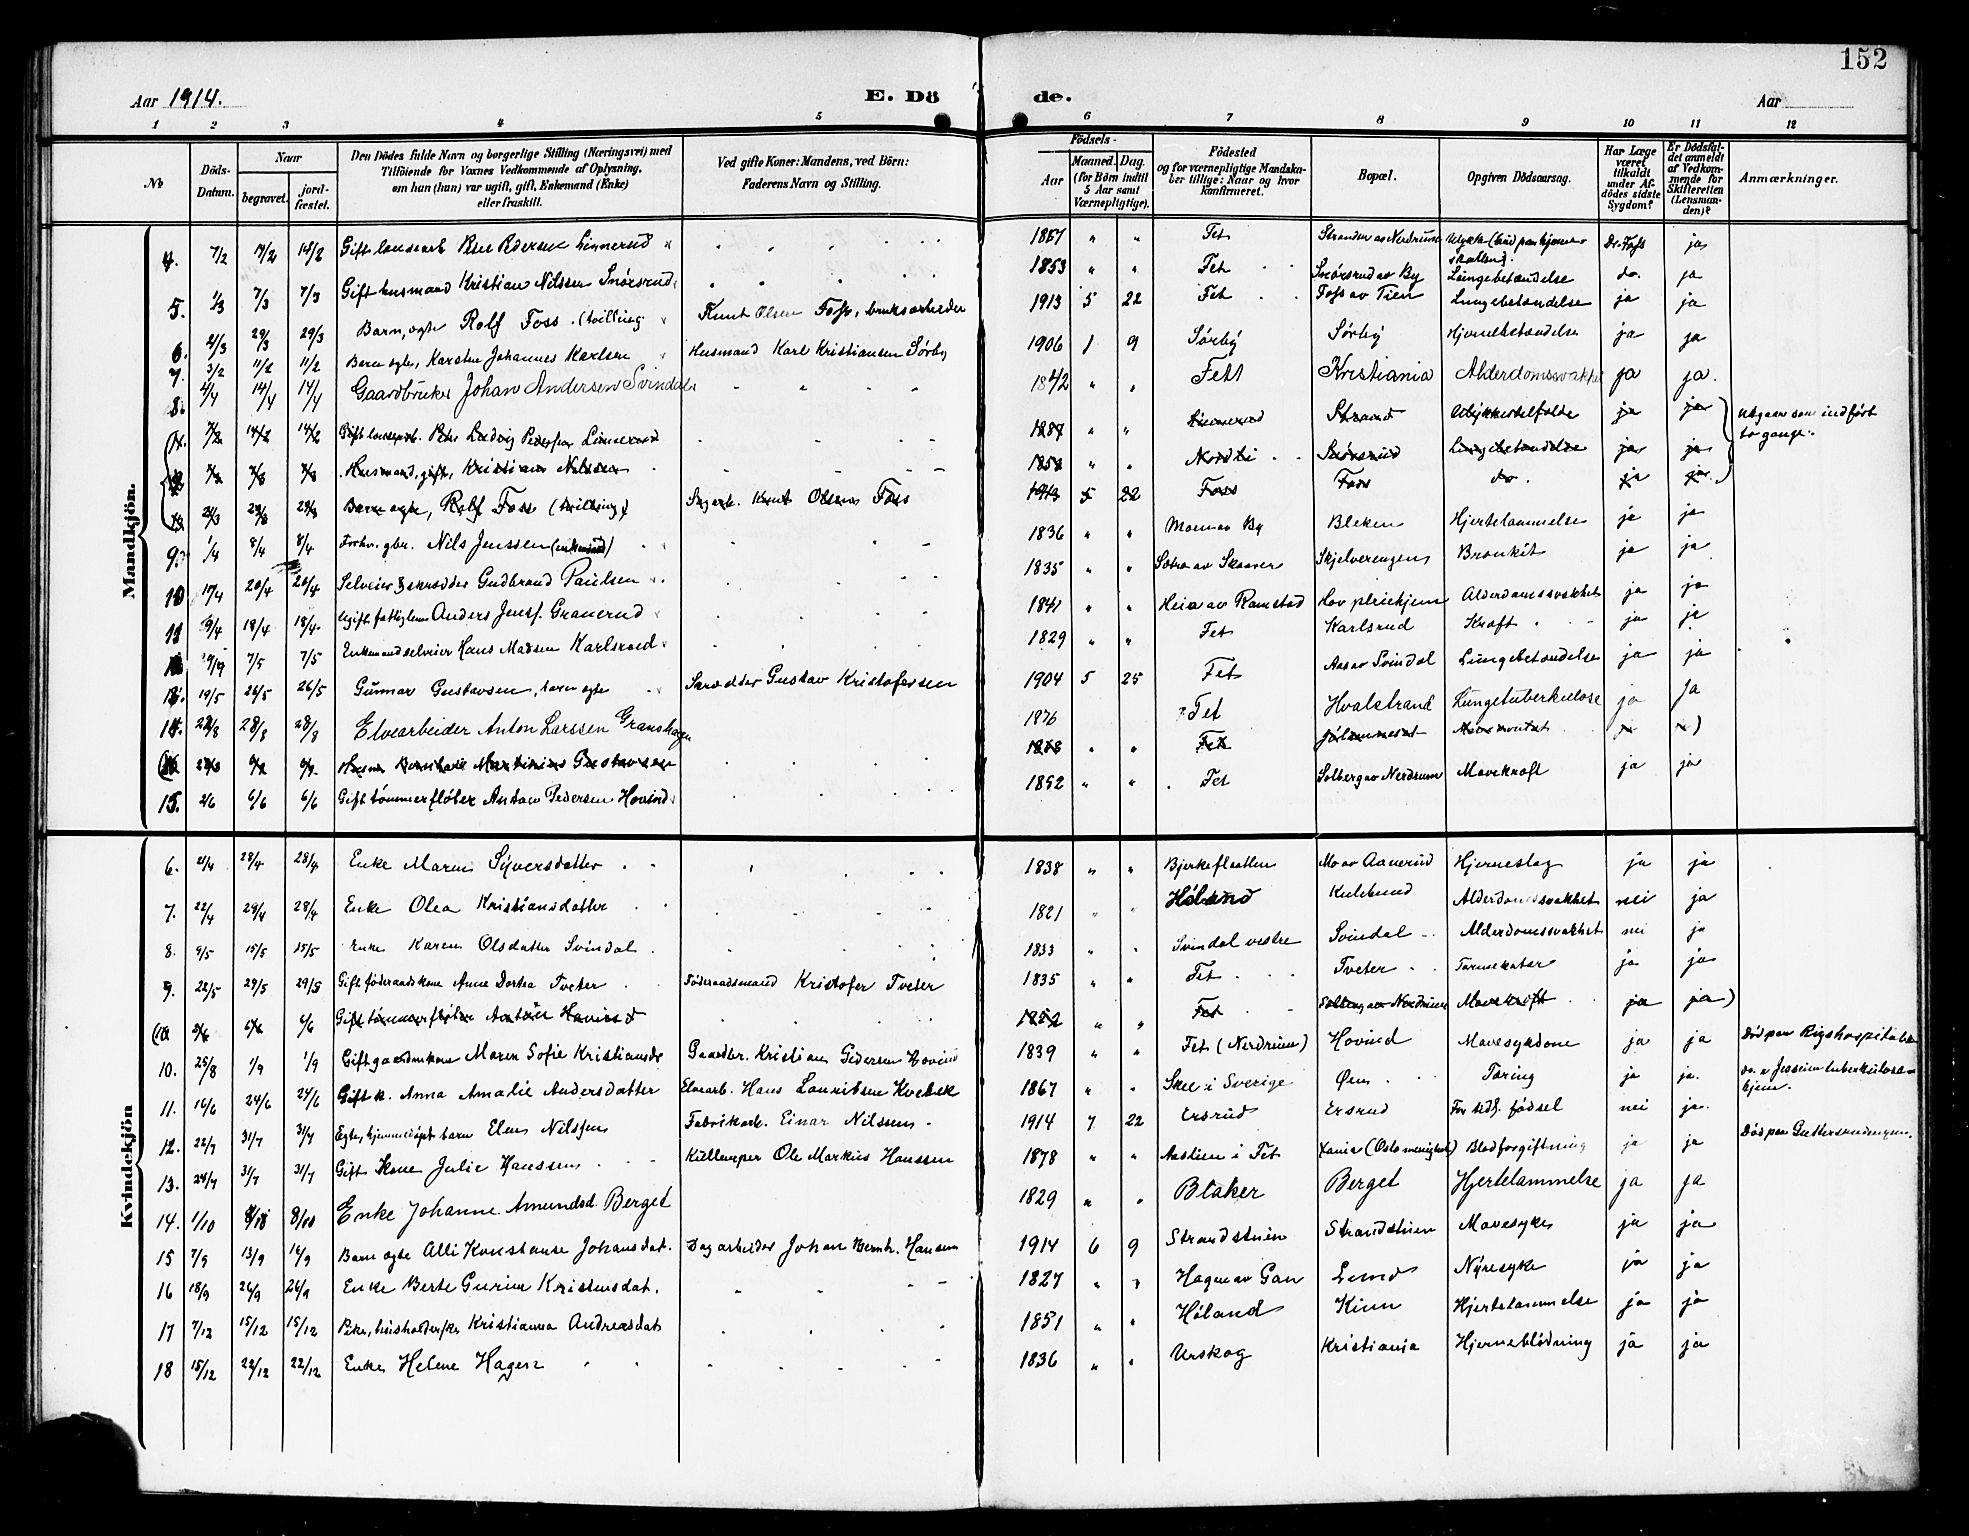 152
Aar 1914.
E. Döde.
Aar
1 2 3 4 5 6 7 8 9 10 11 12
No
Döds-Datum.
Naar
begravet.
jord-fæstet.
Den Dödes fulde Navn og borgerlige Stilling (Næringsvei) med
Tilföiende for Voxnes Vedkommende af Oplysning,
om hun (han) var ugift, gift, Enkemand (Enke)
eller fraskilt.
Ved gifte Koner: Mandens, ved Börn:
Faderens Navn og Stilling.
Födsels-
Aar
Maaned. Dag.
(for Börn indtil
5 Aar samt
Værnepligtige).
Födested
og for værnepligtige Mandska-
ber tillige: Naar og hvor
konfirmeret.
Bopæl.
Opgiven Dödsaarsag.
Har Læge
været
tilkaldt
under Af-
dödes sidste
Sygdom?
Er Dödsfal-
det anmeldt
af Vedkom-
mende for
Skifteretten
(Lensman-
den)?
Anmærkninger.
Mandkjön.
4. 7/2 14/2 14/2 Gift Peder Pedersen Linnerud 1857 Fet Stranden av Nerdrum Dr. Foss ja
5. 1/3 7/3 7/3 Gift husmand Kristian Nilssen Snørsrud 1853 Fet Snørsrud av By Lungebetændelse do. ja
6. 21/3 29/3 29/3 Barn, egte Rolf Foss (tvilling) Knut Olsen Foss, bruksarbeider 1913 5 22 Fet Foss av Tien Lungebetændelse ja ja
7. 3/2 11/2 11/2 Barn egte, Karsten Johannes Karlsen Husmand Karl Kristiansen Sørby 1906 1 9 Sørby Sørby Hjernebetændelse ja ja
8. 2/4 14/4 14/4 Gaardbruker Johan Andersen Svindal 1842 Fet Kristiania Alderdomssvakhet ja ja.
14/2 14/2 Ludvig Pedersen Linnerud Linnerud Strand Ulykkestilfælde ja ja Utgaar som indført to gange.
Husmand, gift, Kristian Nilssen Nordli Snørsrud Lungebetændelse ja ja
Barn egte, Rolf Foss (tvilling) Knut Olsen Foss 1913 5 22 Foss Foss do. ja ja
9. 1/4 8/4 8/4 Forhv. gbr. Nils Jenssen (enkemand) 1836 Moen av By Bleken Hjertelammelse ja ja
10 17/4 20/4 20/4 Selveier & skrædder Gudbrand Paulsen 1835 Sætra av Skaarer Skjelverengen Bronkit ja ja
11 9/4 18/4 18/4 Ugift fattiglem Anders Jenss. Granerud 1841 Heia av Ramstad Hov pleiehjem Alderdomssvakhet ja ja
7/5 7/5 Enkemand selveier Hans Madsen Karlsrud 1829 Fet Karlsrud Kræft ja ja
19/5 26/5 26/5 Gunnar Gustavsen, barn egte Skrædder Gustav Kristofersen 1904 5 25 Fet Aas av Svindal Lungebetændelse ja ja
14. 28/8 28/8 Elvearbeider Anton Larssen Granshagen 1876 Fet Hvalstrand Lungetuberkulose ja ja
Martinius Gustavsen 1878 Fet ja ja)
15. 2/6 6/6 6/6 Gift tømmerfløter Anton Pedersen Hovind 1852 Fet Solberg av Nerdrum Mavekræft ja ja
Kvindekjön
6. 21/4 28/4 28/4 Enke Maren Syversdatter 1838 Bjerkeflaatten Mo av Aanerud Hjerneslag ja ja
7. 22/4 29/4 28/4 Enke Olea Kristiansdatter 1821 Høland Kulsrund Alderdomssvakhet nei ja
8. 9/5 15/5 15/5 Enke Karen Olsdatter Svindal 1833 Svindal vestre Svindal Alderdomssvakhet nei ja
9. 22/5 29/5 29/5 Gift føderaadskone Anne Dortea Tveter Føderaadsmand Kristofer Tveter 1835 Fet Tveter Tarmekatar ja ja
6/6 Gift tømmerfløter Anton Hovind 1852 Fet Solberg av Nerdrum Mavekræft ja ja)
10. 25/8 1/9 1/9 Gift gaardmkone Maren Sofie Kristiansdr Gaardbr. Kristian Pedersen Hovind 1839 Fet (Nerdrum) Hovind Mavesykdom ja ja Død paa Rigshospitalet
11. 16/6 24/6 24/6 Gift k. Anna Amalie Andersdatter Elvearb. Hans Lauritsen Kvebæk 1867 Skee i Sverige Øien Tæring ja ja. do. tuberkulose-hjem.
12. 22/7 31/7 31/7 Egte, hjemmedøpt barn Elen Nilssen Fabrikarb. Einar Nilssen 1914 7 22 Ersrud Ersrud For tidl. fødsel nei ja.
13. 24/7 31/7 31/7 Gift Kone Julie Hanssen Kullemper Ole Markus Hanssen 1878 Aaslien i Fet Xania (Oslo menighet) Blodforgiftning ja ja Død paa
14. 1/10 8/10 8/10 Enke Johanne Amundsd. Berget 1829 Blaker Berget Hjertelammelse ja ja
15 7/9 13/9 16/9 Barn egte Alli Konstanse Johansdat. Dagarbeider Johan Bernh. Hansen 1914 6 9 Strandstuen Strandstuen Mavesyke ja ja
16 18/9 26/9 26/9 Enke Berte Gurine Kristensdat. 1827 Hagen av Gan Lund Nyresyke ja ja
17 7/12 15/12 15/12 Pike, husholderske Kristianna Andreasdat 1851 Høland Kinn Hjertelammelse ja ja
18 15/12 22/12 22/12 Enke Helene Hagen 1836 Urskog Kristiania Hjerneblødning ja ja